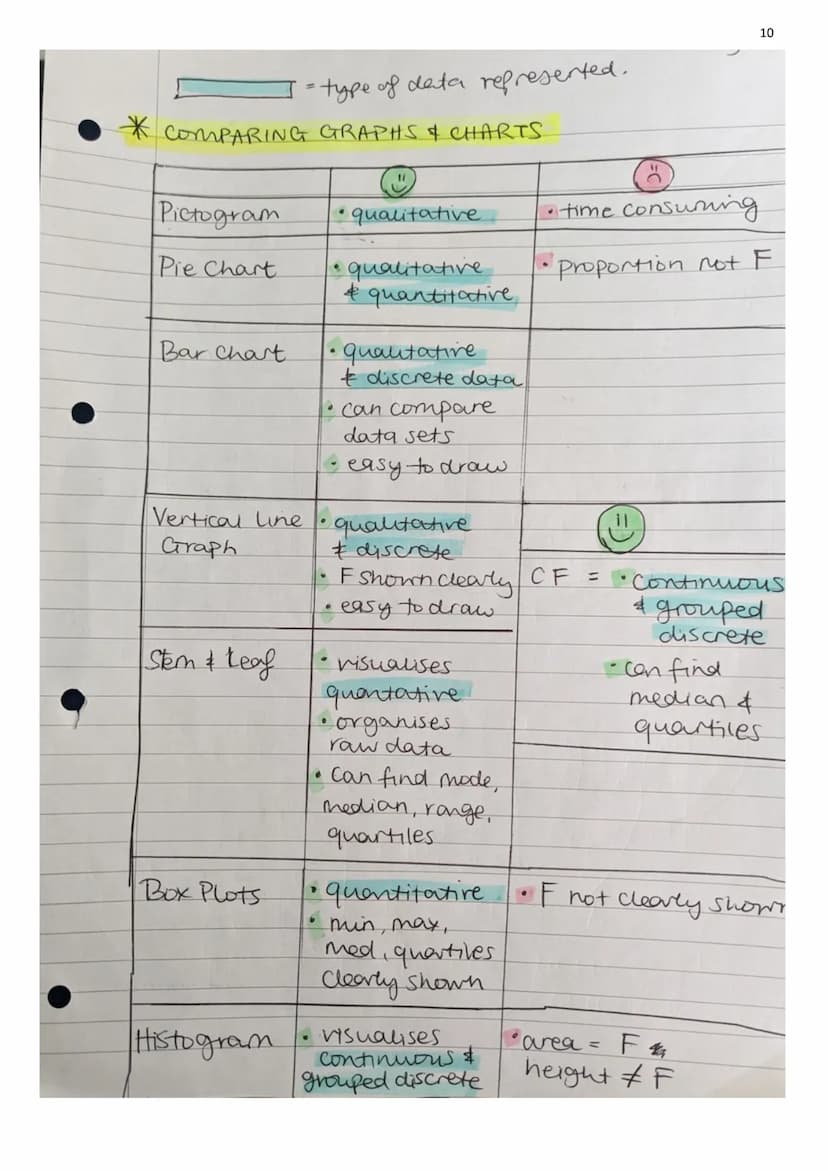 10
= type of data represented.
* COMPARING GRAPHS & CHARTS
Pictogram
• qualitative
• time consuming
Pie Chart
• qualitative
& quantitative
• proportion not F
Bar Chart
• qualitative
& discrete data
• can compare
data sets
• easy to draw
Vertical Line
Graph
• qualitative
& discrete
• F shown clearly
• easy to draw
CF = • continuous
& grouped
discrete
• can find
median &
quartiles
Stem & Leaf
• visualises
quantative
• organises
raw data
• Can find mode,
median, range,
quartiles
Box Plots
• quantitative
• min, max,
med, quartiles
clearly shown
• F not clearly shown
Histogram
• visualises
continuous &
grouped discrete
• area = F &
height ≠ F